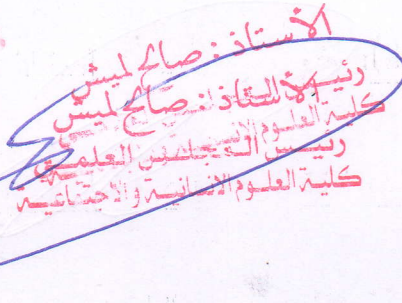 الأستاذ: صالح لميش
الأستاذ: صالح لميش
رئيس
كلية العلوم
رئيس المجلس العلمي
كلية العلوم الانسانية والاجتماعية